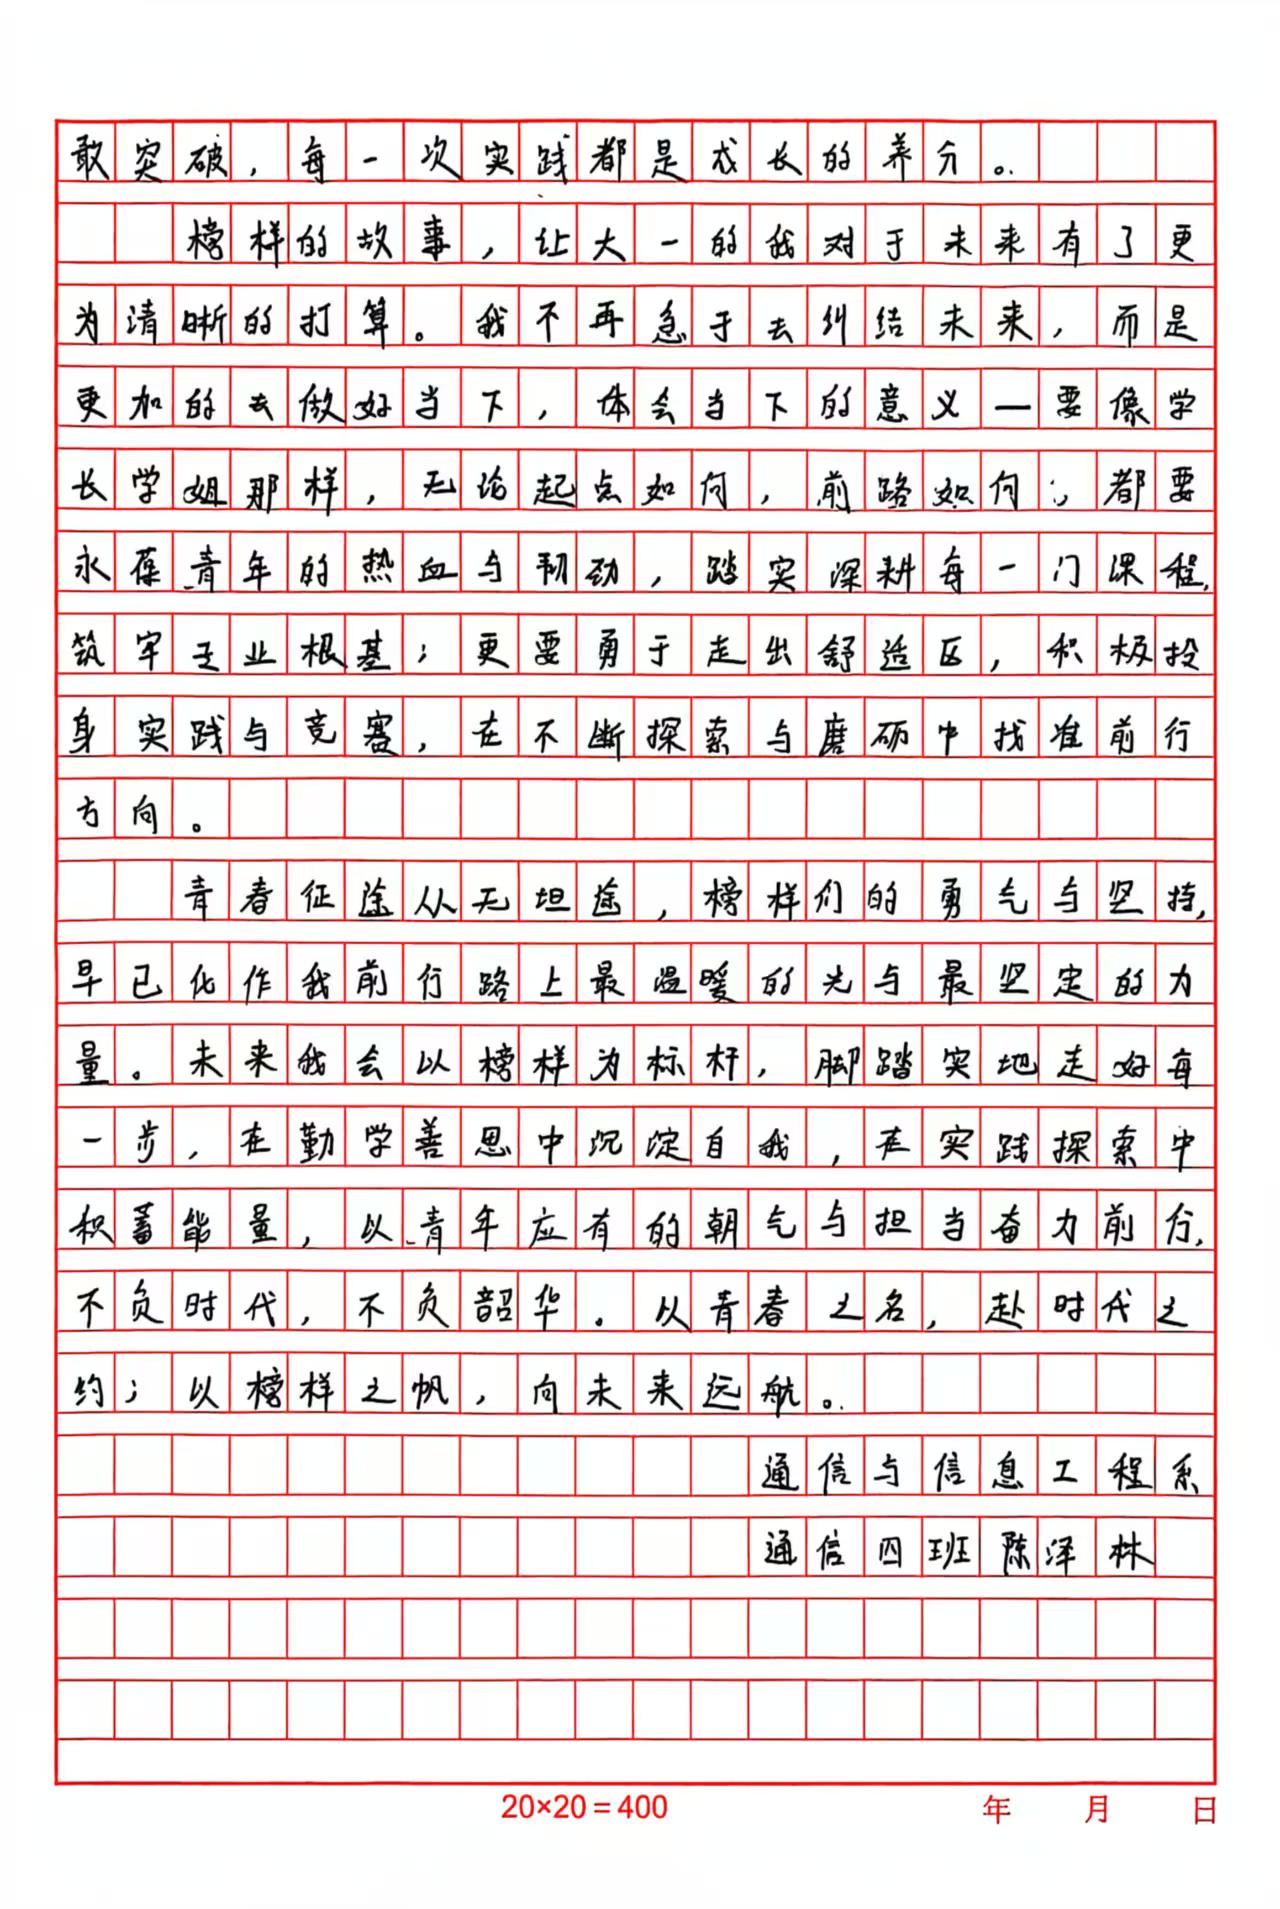 敢突破，每一次实践都是成长的养分。
榜样的故事，让大一的我对于未来有了更
为清晰的打算。我不再急于去纠结未来，而是
更加的去做好当下，体会当下的意义—要像学
长学姐那样，无论起点如何，前路如何；都要
永葆青年的热血与韧劲，踏实深耕每一门课程，
筑牢专业根基；更要勇于走出舒适区，积极投
身实践与竞赛，在不断探索与磨砺中找准前行
方向。
青春征途从无坦途，榜样们的勇气与坚持，
早已化作我前行路上最温暖的光与最坚定的力
量。未来我会以榜样为标杆，脚踏实地走好每
一步，在勤学善思中沉淀自我，在实践探索中
积蓄能量，以青年应有的朝气与担当奋力前行，
不负时代，不负韶华。以青春之名，赴时代之
约；以榜样之帆，向未来远航。
通信与信息工程系
通信四班陈泽林
20×20=400 年 月 日